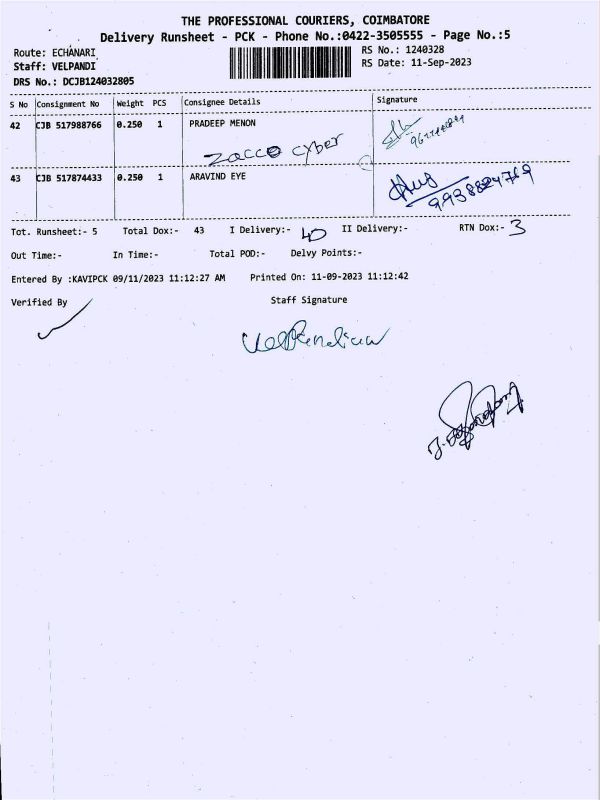 THE PROFESSIONAL COURIERS, COIMBATORE
Delivery Runsheet - PCK - Phone No.:0422-3505555 - Page No.:5
Route: ECHANARI
Staff: VELPANDI
DRS No.: DCJB124032805
RS No.: 1240328
RS Date: 11-Sep-2023
S No Consignment No Weight PCS Consignee Details Signature
42 CJB 517988766 0.250 1 PRADEEP MENON
Zacco cyber
43 CJB 517874433 0.250 1 ARAVIND EYE
Tot. Runsheet:- 5 Total Dox:- 43 I Delivery:- 40 II Delivery:- RTN Dox:- 3
Out Time:- In Time:- Total POD:- Delvy Points:-
Entered By :KAVIPCK 09/11/2023 11:12:27 AM Printed On: 11-09-2023 11:12:42
Verified By Staff Signature